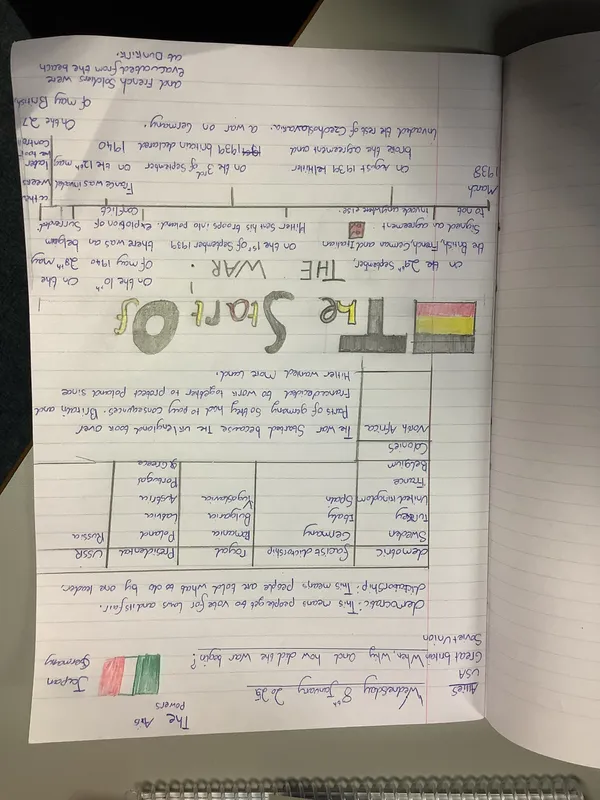 The Axis
Powers
Allies
Wednesday 8th January 2025
USA
Great britain When, why and how did the war begin?
Soviet Union
Jaepan
Germany
democratic: This means people get to vote for laws and its fair.
dictatorship: This means people are told what to do by one leader.
democratic
facist dictorship
royal
Presidental
USSR
Sweden
Germany
Romania
Poland
Russia
Turkey
Italy
Bulgaria
Latvia
United kingdom
Spain
Yugoslavia
Austria
France
Portugal
Belgium
Greece
Colonies
North Africa
The war started because The
england took over
Parts of
so they had to pay consequences. Britain and
France decided to work together to protect Poland since
Hitler wanted More Land.
The Start Of
THE WAR!
On the 29th September,
the British, French, German and Italian
Signed an agreement
to not invade anywhere else.
On the 1st of September 1939
Hitler sent his troops into poland.
On the 10th
Of may 1940
there was an
explotion of
Conflict
On the
28th may
belgium
Surrended
March
1938
On August 1939
Hitler
broke the agreement and
Invaded the rest of Czechoslovakia.
On the 3rd of September
1939 britain declared
a war on Germany.
France was invaded
on the 12th may
1940
On the 27
Of may British
and French Soldiers were
evacuated from the beach
at Dunkirk.